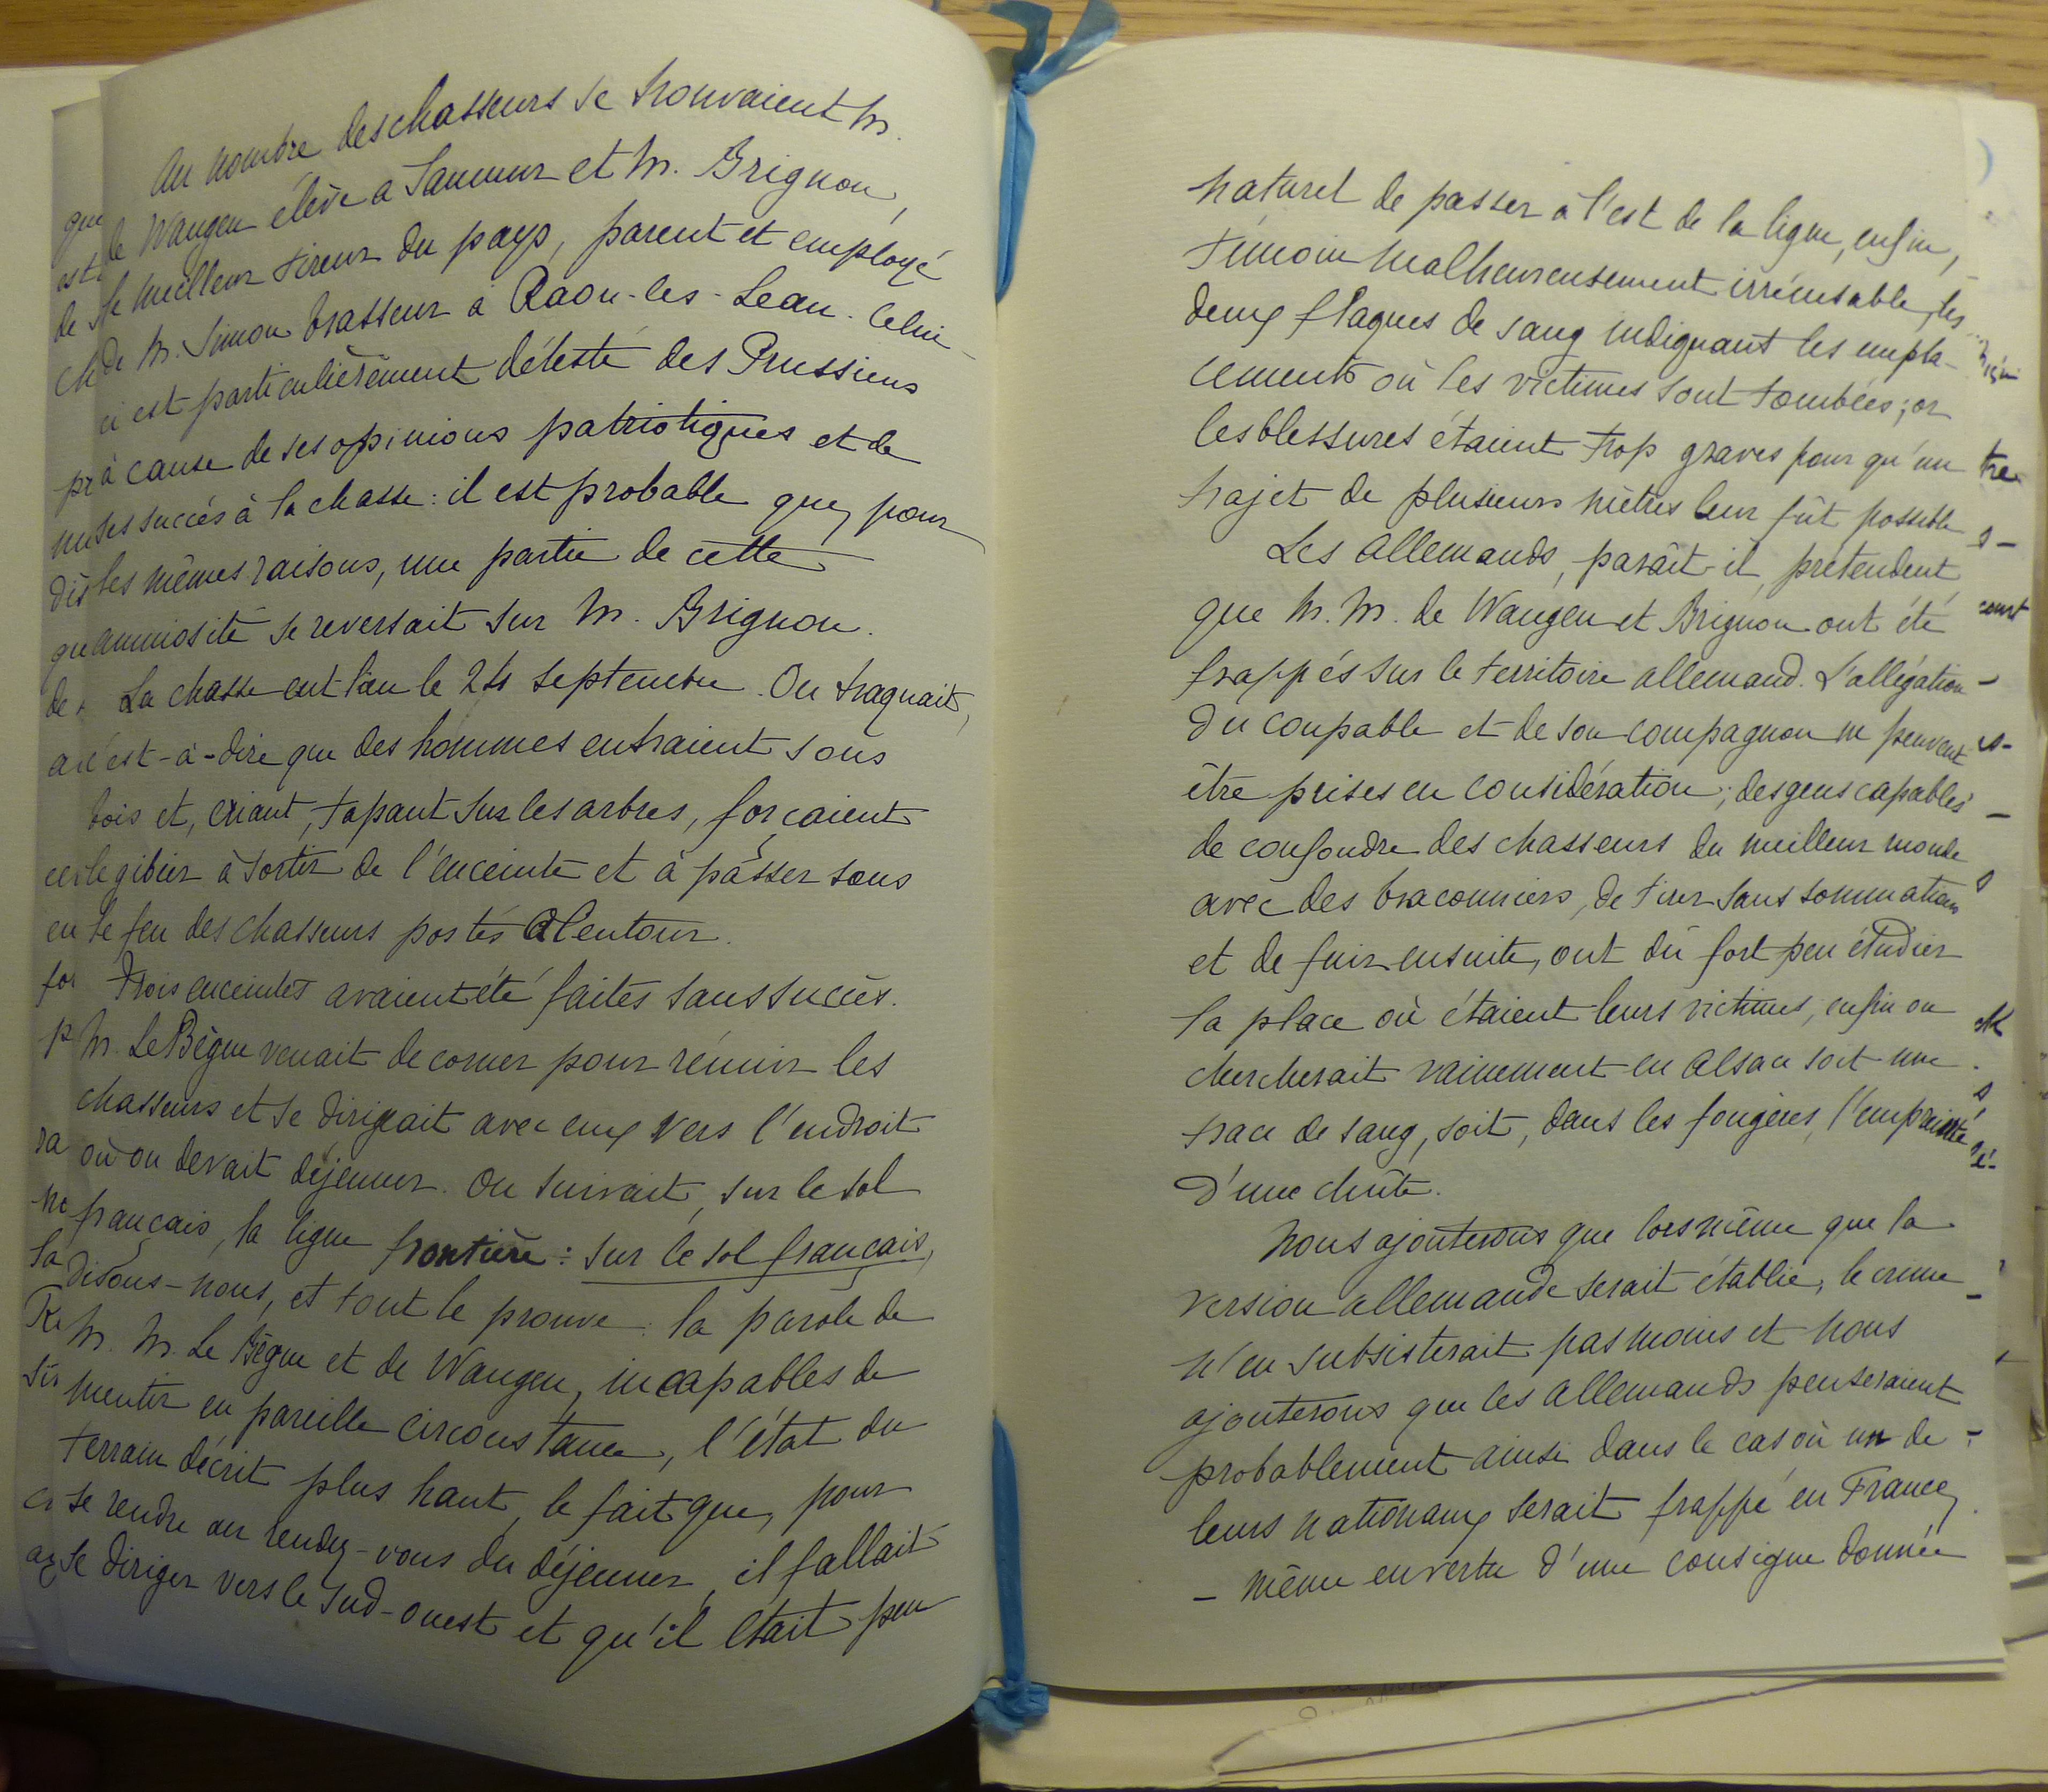 Au nombre des chasseurs se trouvaient M.
de Wangen élève a Saumur et M. Brignon,
le meilleur tireur du pays, parent et employé
de M. Simon brasseur à Raon-les-Leau. Celui-
ci est particulièrement détesté des Prussiens
à cause de ses opinions patriotiques et de
ses succès à la chasse : il est probable que, pour
les mêmes raisons, une partie de cette
animosité se reversait sur M. Brignon.
La chasse eut lieu le 24 septembre. On traquait,
c'est-à-dire que des hommes entraient sous
bois et, criant, tapant sur les arbres, forçaient
le gibier à sortir de l'enceinte et à passer sous
le feu des chasseurs postés alentour.
Trois enceintes avaient été faites sans succès.
M. Le Bègue venait de corner pour réunir les
chasseurs et se dirigeait avec eux vers l'endroit
où on devait déjeuner. On suivait, sur le sol
français, la ligne frontière : sur le sol français,
disons-nous, et tout le prouve : la parole de
M. M. Le Bègue et de Wangen, incapables de
mentir en pareille circonstance, l'état du
terrain décrit plus haut, le fait que, pour
se rendre au rendez-vous du déjeuner, il fallait
se diriger vers le sud-ouest et qu'il était peu
naturel de passer à l'est de la ligne, enfin,
témoin malheureusement irrécusable, les
deux flaques de sang indiquant les empla-
cements où les victimes sont tombées ; or
les blessures étaient trop graves pour qu'un
trajet de plusieurs mètres leur fût possible
Les allemands, paraît-il, prétendent
que M. M. de Wangen et Brignon ont été
frappés sur le territoire allemand. L'allégation
du coupable et de son compagnon ne peuvent
être prises en considération ; des gens capables
de confondre des chasseurs du meilleur monde
avec des braconniers, de tirer sans sommation
et de fuir ensuite, ont dû fort peu étudier
la place où étaient leurs victimes, enfin on
chercherait vainement en Alsace soit une
trace de sang, soit, dans les fougères, l'empreinte
d'une chûte.
Nous ajouterons que lors même que la
version allemande serait établie, le crime
n'en subsisterait pas moins et nous
ajouterons que les allemands penseraient
probablement ainsi dans le cas où un de
leurs nationaux serait frappé en France,
– même en vertu d'une consigne donnée